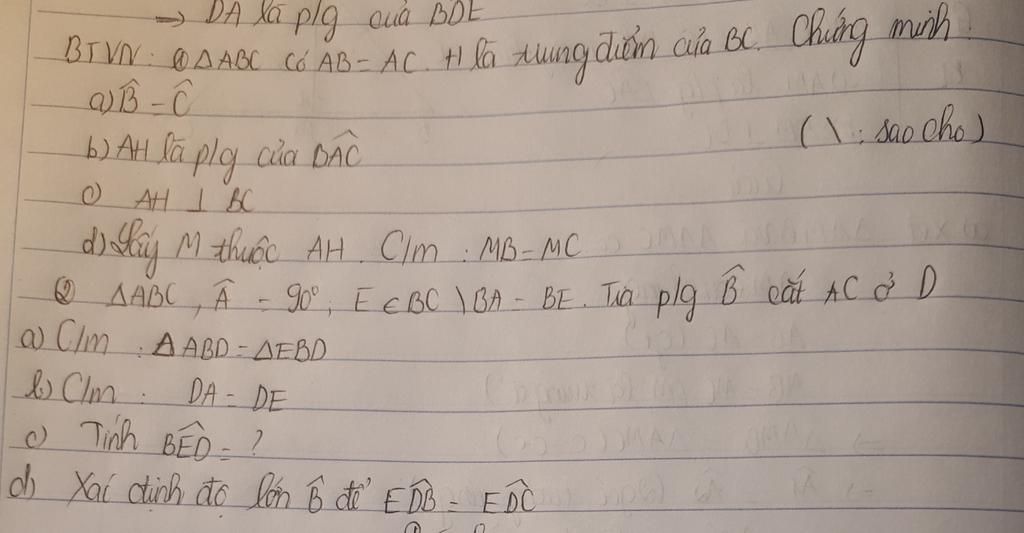 → DA là p/g của BDE
BTVN: ① △ABC có AB = AC. H là trung điểm của BC. Chứng minh:
a) B̂ = Ĉ
(\ : sao cho)
b) AH là p/g của BÂC
c) AH ⊥ BC
d) Lấy M thuộc AH. C/m : MB = MC
② △ABC, Â = 90°, E ∈ BC \ BA = BE. Tia p/g B̂ cắt AC ở D
a) C/m : △ABD = △EBD
b) C/m : DA = DE
c) Tính BÊD = ?
d) Xác định độ lớn B̂ để ED̂B = ED̂C